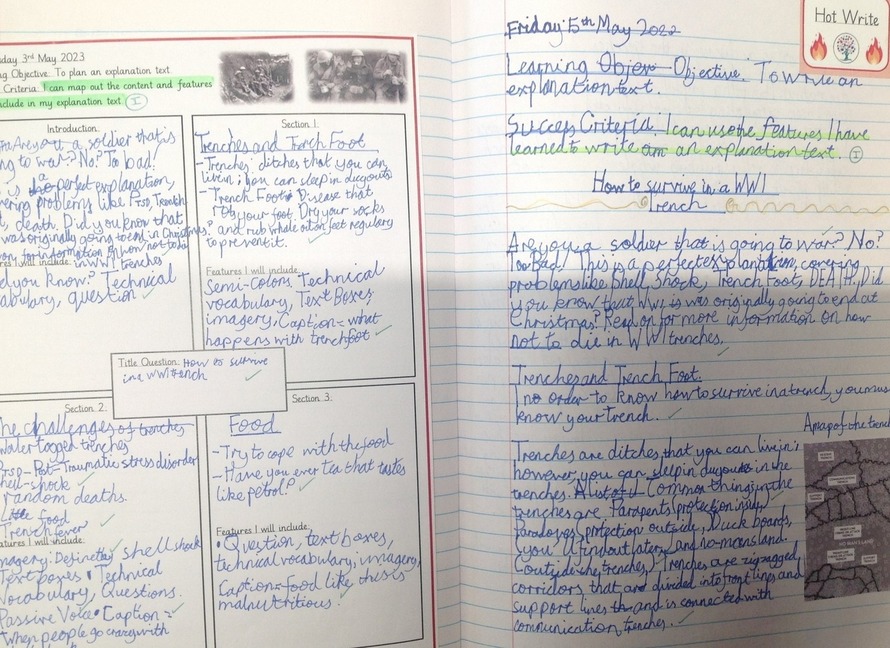 day 3rd May 2023
ng Objective: To plan an explanation text.
Criteria: I can map out the content and features
include in my explanation text. I
Introduction.
Are you a soldier that is
ng to war? No? Too bad!
is a perfect explanation,
ering problems like PTSD, Trench
, death. Did you know that
was originally going to end in Christmas?
on for information on how not to die
res I will include: in WW1 trenches
d you know? Technical
abulary, question
Section 1.
Trenches and Trench Foot
- Trenches: ditches that you can
live in; you can sleep in dugouts
- Trench Foot: Disease that
rots your foot. Dry your socks
and rub whale oil on feet regulory
to prevent it.
Features I will include:
Semi-colons. Technical
vocabulary, Text Boxes,
imagery, Caption = what
happens with trench foot
Title Question: How to survive
in a WW1 trench
Section 2.
The challenges of trenches
Water logged trenches
Ptsp - Post-Traumatic stress disorder
hell-shock
random deaths.
Little food
Trench fever
atures I will include:
magery: shell shock
Text boxes • Technical
Vocabulary, Questions.
Passive Voice • Caption =
When people go crazy with
Section 3.
Food
- Try to cope with the food
- Have you ever tea that tastes
like petrol?
Features I will include:
• Question, text boxes,
technical vocabulary, imagery,
Caption = food like this is
malnutritious.
Hot Write
Friday 5th May 2022
Learning Objev Objective: To write an
explanation text.
Success Criteria: I can use the features I have
learned to write am an explanation text. I
How to survive in a WW1
Trench
Are you a soldier that is going to war? No?
Too Bad! This is a perfect explanation, covering
problems like Shell Shock, Trench Foot, DEATH, Did
you know that WW1 is was originally going to end at
Christmas? Read on for more information on how
not to die in WW1 trenches.
Trenches and Trench Foot.
In order to know how to survive in a trench, you mus
know your Trench.
A map of the trench
Trenches are ditches, that you can live in;
however, you can sleep in dugouts in the
trenches. A list of Common things in the
trenches are Parapents (protection inside),
Paradoves (protection outside), Duck boards,
(you'll find out later), and no-mans land.
(outside the trenches,) Trenches are zig-zagged
corridors that are divided into front lines and
support lines th and is connected with
communication trenches.